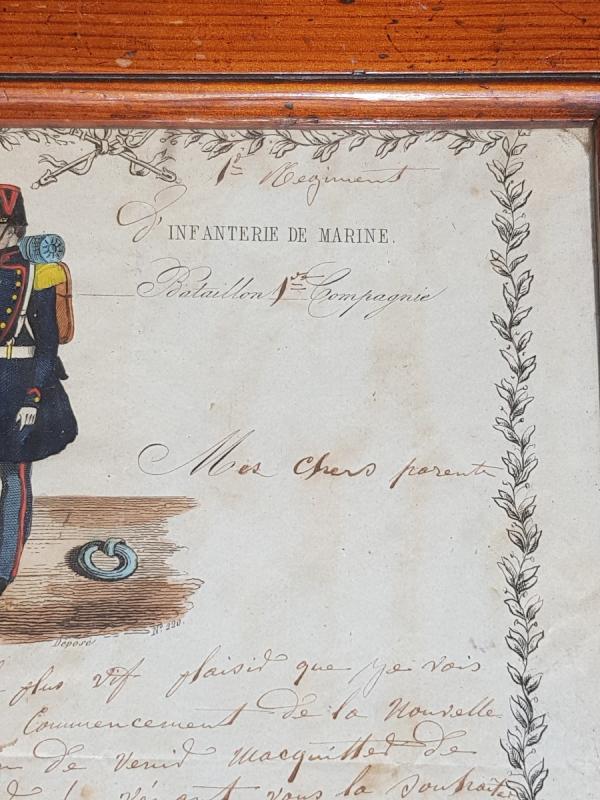 1er Regiment
D'INFANTERIE DE MARINE.
Bataillon 1re Compagnie
Mes chers parents
Déposé
No. 220.
plus vif plaisir que je vois
Commencement de la Nouvelle
de venir macquitter de
vous la souhaiter